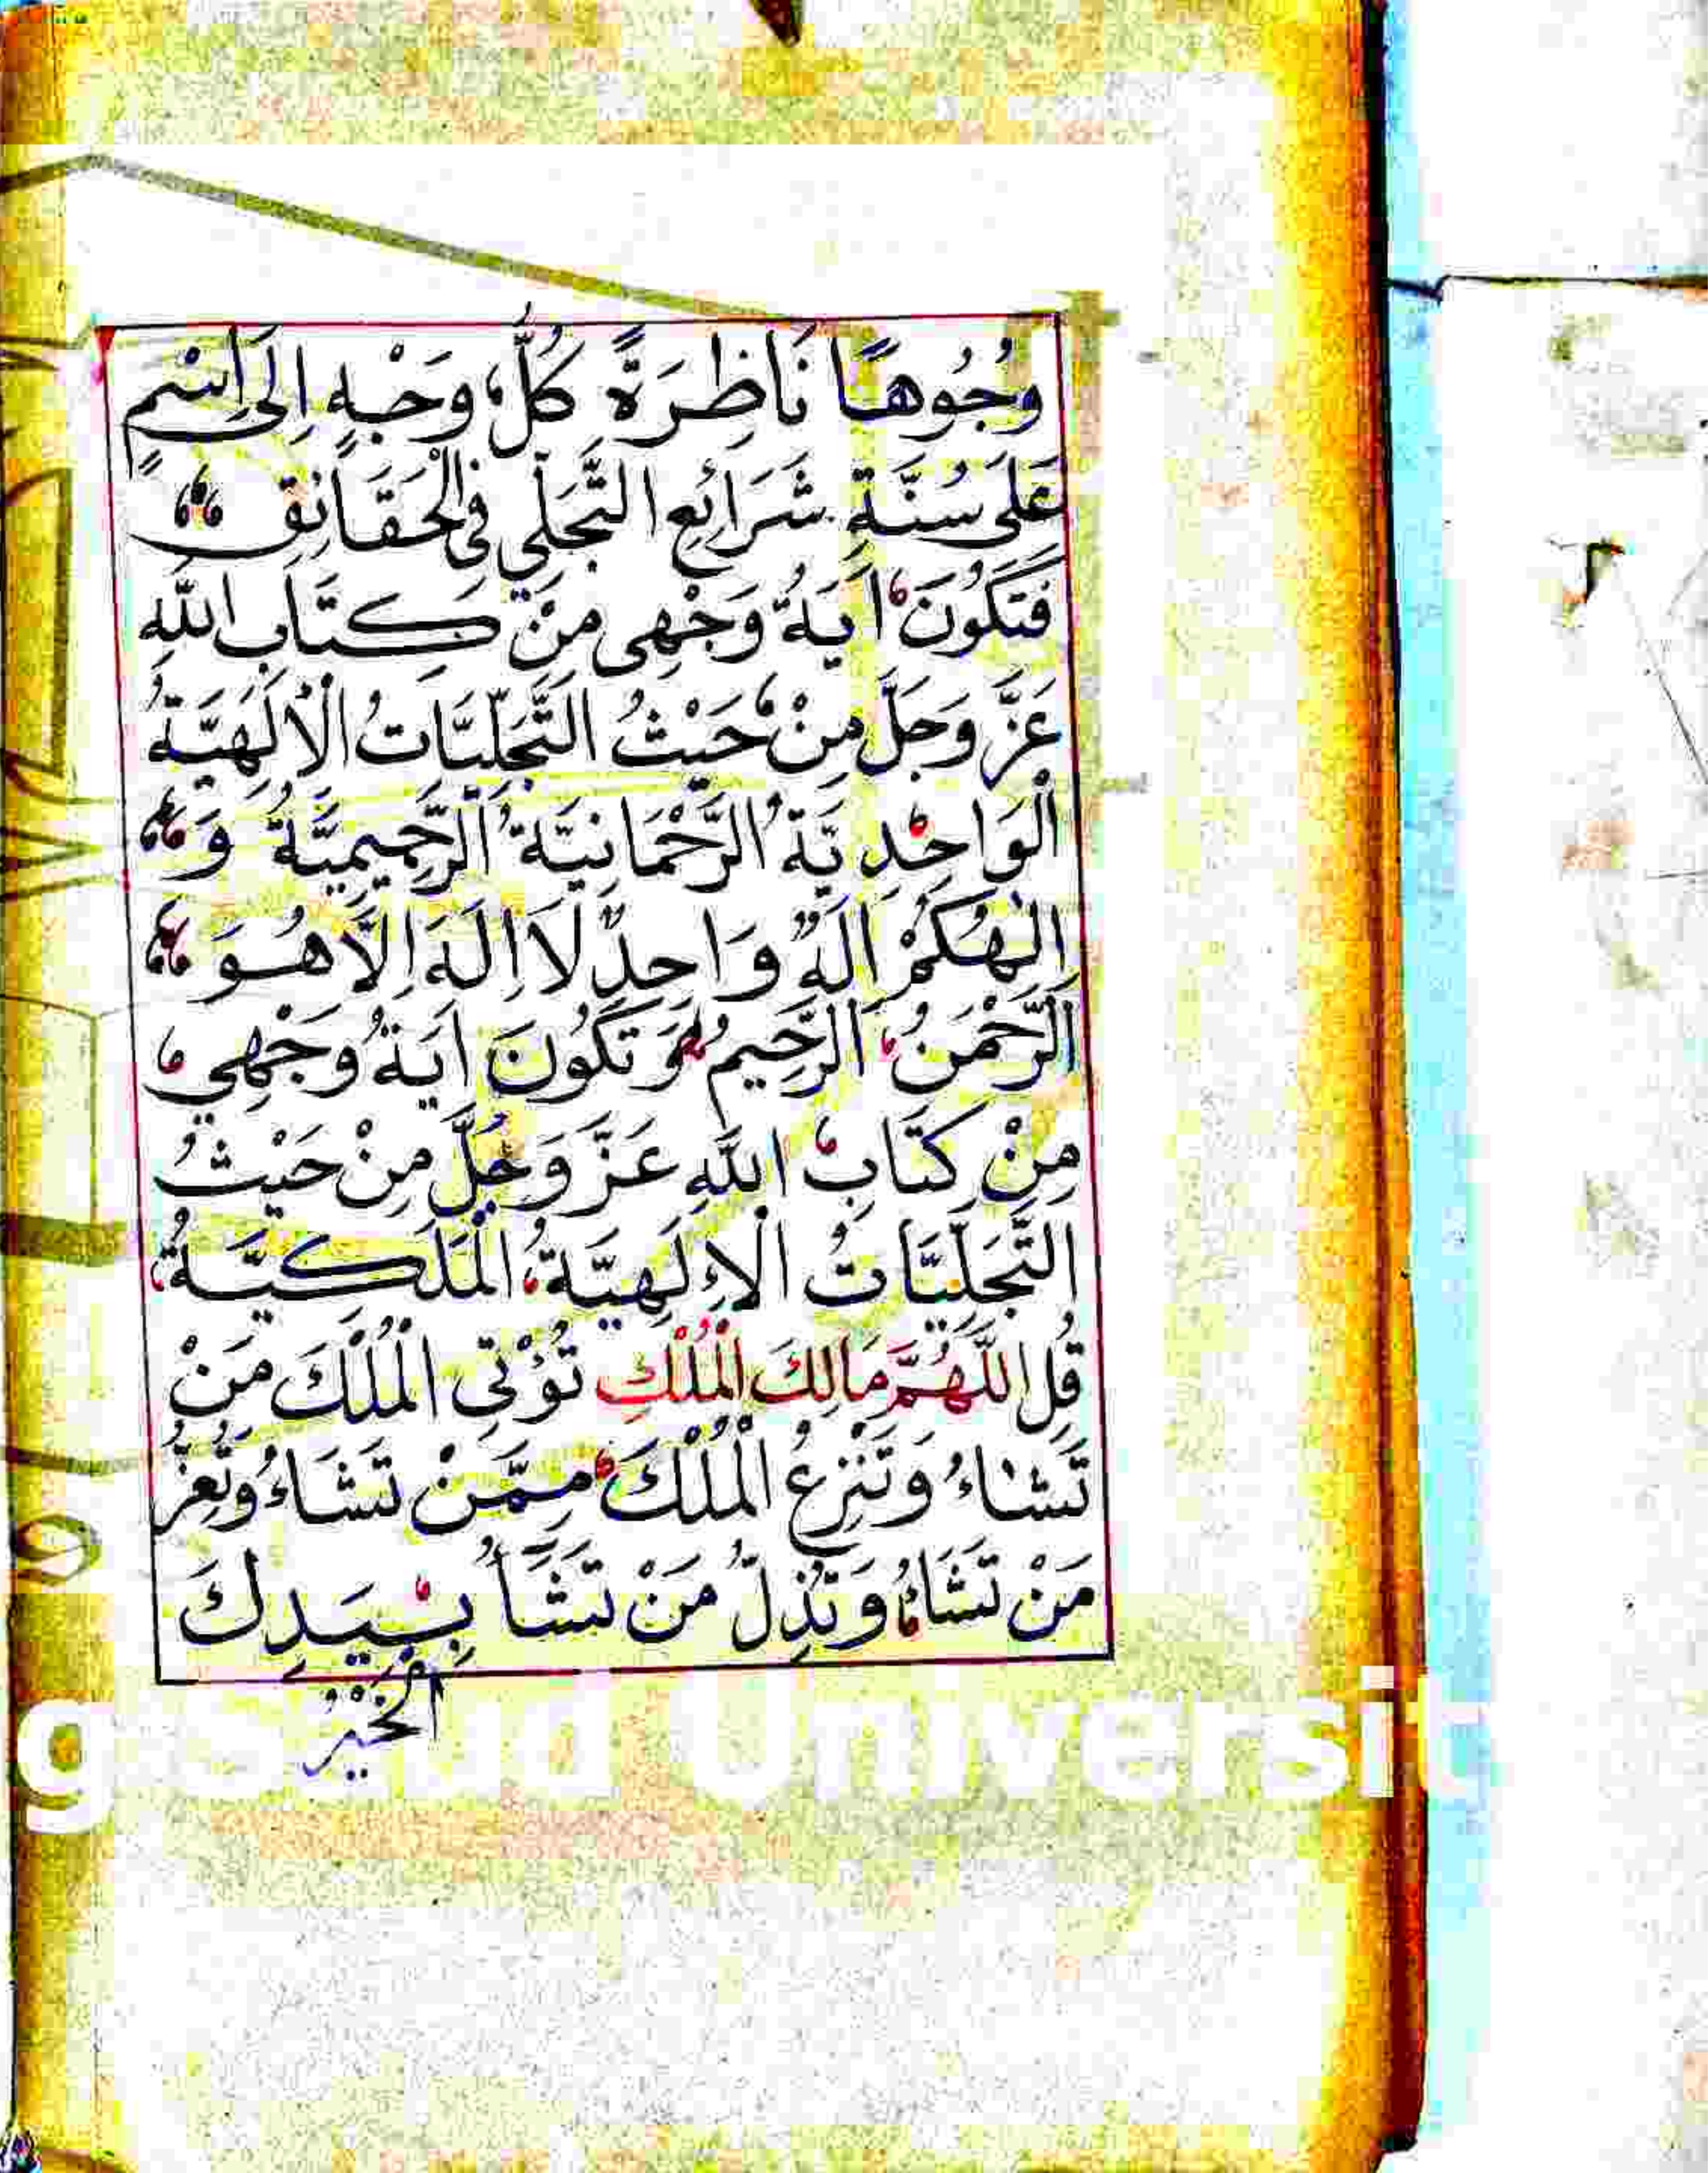 وُجُوهًا نَاظِرَةً كُلُّ وَجْهٍ اِلَى اِسْمٍ
عَلَى سُنَّةِ شَرَائِعِ التَّجَلِّي فِي الْحَقَائِقِ
فَتَكُونَ اٰيَةُ وَجْهِى مِنْ كِتَابِ اللّٰهِ
عَزَّ وَجَلَّ مِنْ حَيْثُ التَّجَلِّيَاتُ الْاِلَهِيَّةُ
الْوَاحِدِيَّةُ الرَّحْمَانِيَّةُ الرَّحِيمِيَّةُ وَ
اِلٰهُكُمْ اِلَهٌ وَاحِدٌ لَا اِلَهَ اِلَّا هُوَ
الرَّحْمَنُ الرَّحِيمُ وَ تَكُونَ اٰيَةُ وَجْهِي
مِنْ كِتَابِ اللّٰهِ عَزَّ وَجَلَّ مِنْ حَيْثُ
التَّجَلِّيَّاتُ الْإِلَهِيَّةُ الْمَلَكِيَّةُ
قُلِ اللَّهُمَّ مَالِكَ الْمُلْكِ تُؤْتِي الْمُلْكَ مَنْ
تَشَاءُ وَتَنْزِعُ الْمُلْكَ مِمَّنْ تَشَاءُ وَتُعِزُّ
مَنْ تَشَاءُ وَتُذِلُّ مَنْ تَشَأُ بِيَدِكَ
الْخَيْرُ
g Saud Universit